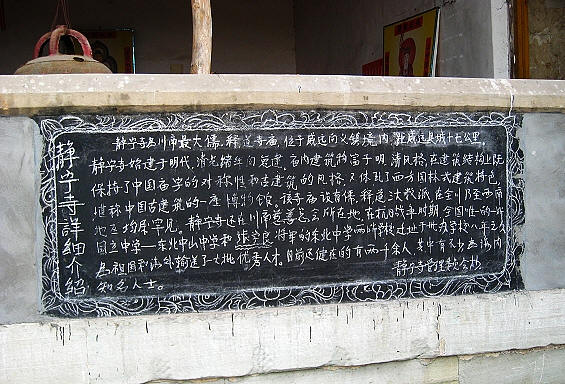 静宁寺詳细介紹
静宁寺为川南最大儒、釋、道寺庙,位于威远向义镇境内,距威远县城十七公里。
静宁寺始建于明代,清光緒年间复建,庙内建筑特富于明、清风格,在建筑结构上既
保持了中国庙宇的对称性和古建筑的风格,又体现了西方园林式建筑特色,
堪称中国古建筑的一座博物馆。该寺庙设有儒、釋、道三教派,在全川乃至西南
地区均属罕见。静宁寺还是川南慈善总会所在地,在抗战争时期,全国唯一的一所
国立中学——东北中山中学和 将軍的东北中学两所学校迁址于此办学校八年之久
为祖国和海外输送了大批优秀人才。目前还健在的有两千余人,其中有不少为海内
知名人士。
静宁寺管理委会